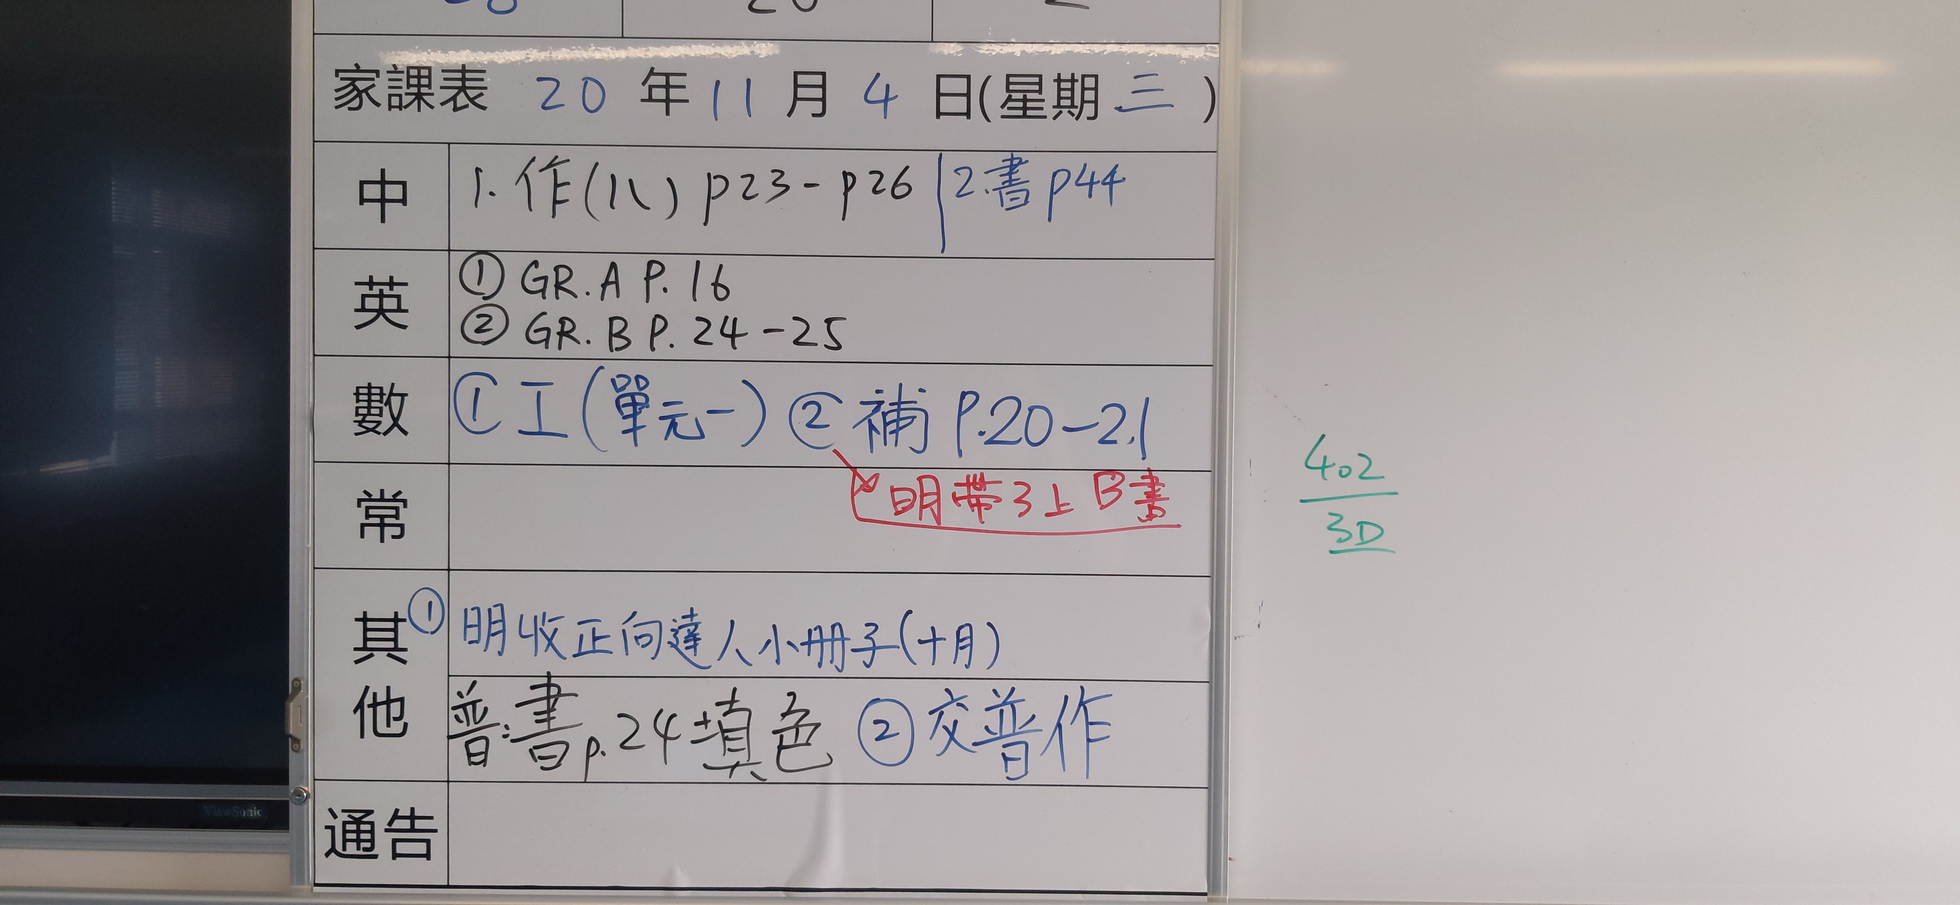 家課表 20 年 11 月 4 日(星期 三 )
中 1. 作(八) p23 - p26 2. 書 p44
英 ① GR.A P.16
② GR.B P.24-25
數 ① 工(單元一) ② 補 P.20-21
常 明帶3上B書
其他 ① 明收正向達人小冊子(十月)
普:書p.24填色 ② 交普作
通告
402
3D
ViewSonic